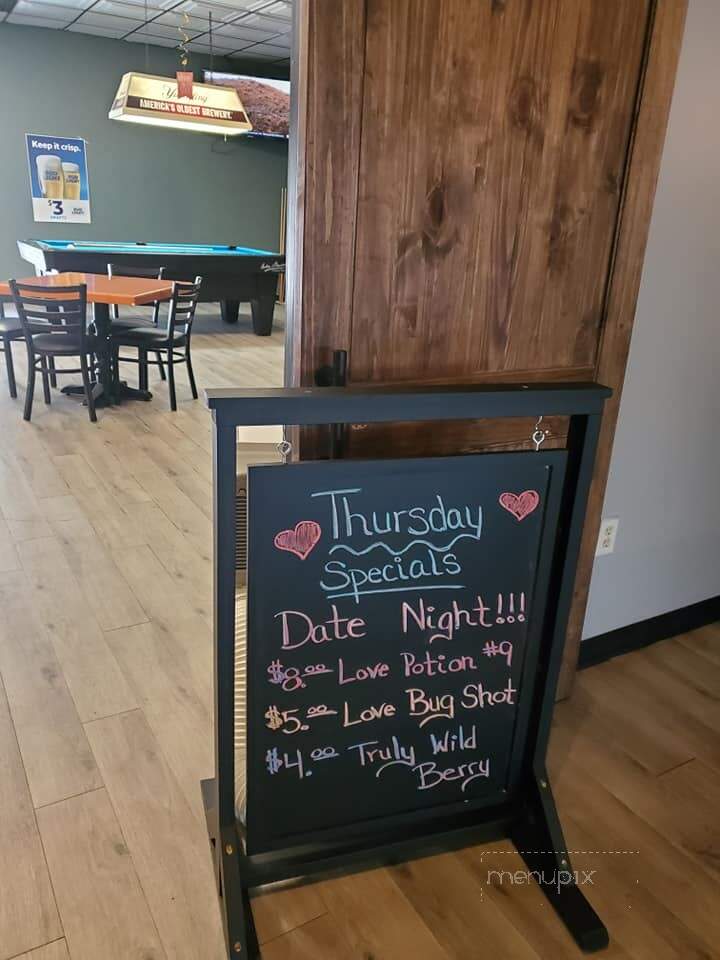 Yuengling
AMERICA'S OLDEST BREWERY.
Keep it crisp.
$3
Thursday
Specials
Date Night!!!
$8.00 Love Potion #9
$5.00 Love Bug Shot
$4.00 Truly Wild
Berry
menupix